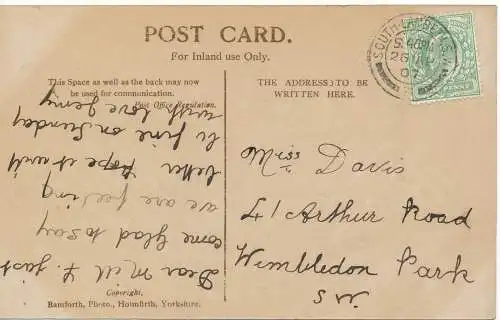 POST CARD.
For Inland use Only.
This Space as well as the back may now
be used for communication.
Post Office Regulation.
THE ADDRESS TO BE
WRITTEN HERE.
Dear M
come Glad to say
we are feeling
better hope it will
be fine on Sunday
with love Jenny
Miss Davis
41 Arthur Road
Wimbledon Park
S.W.
Copyright.
Bamforth, Photo., Holmfirth, Yorkshire.
SOUTH LAMBETH
26
07
PENNY